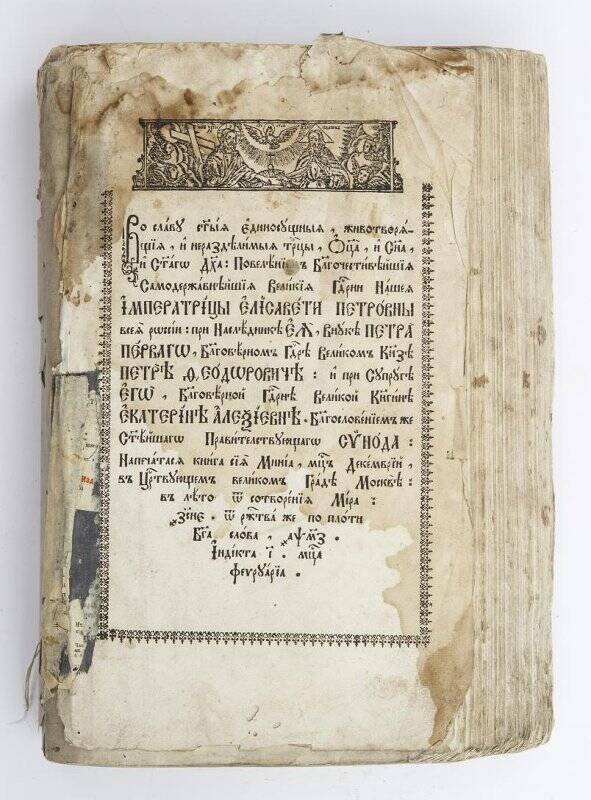 Во славу ст҃ыѧ єдиносꙋщныѧ, животворѧ-
щїѧ, и нераздѣлимыѧ трⷪ҇цы, Ѻ҆ц҃а, и Сн҃а,
и Ст҃агѡ Дх҃а: Повелѣнїемъ Благочестивѣйшїѧ
Самодержавнѣйшїѧ Великїѧ Гдⷭ҇рни Нашеѧ
І҆МПЕРАТРІ́ЦЫ ЕЛІСАВЕТИ ПЕТРОВНЫ
всеѧ̀ рѡссїи: при Наслѣдникѣ Е҆Ѧ̀, Внꙋкѣ ПЕТРА
ПЕРВАГѠ, Благовѣрномъ Гдⷭ҇рѣ Великомъ Кн҃зѣ
ПЕТРѢ Ѳ҆ЕОДѠРОВИЧѢ: и при Сꙋпрꙋгѣ
ЕГѠ̀, Благовѣрной Гдⷭ҇рнѣ Великой Кн҃гинѣ
ЕКАТЕРІ́НѢ А҆ЛЕѮІЕВНѢ. Благословенїемъ же
Ст҃ѣйшагѡ Правителствꙋющагѡ СѴНО́ДА:
Напечатасѧ книга сїѧ̀ Минїа, мцⷭ҇ъ Декемврїй,
въ Црⷭ҇твꙋющемъ великомъ Градѣ Москвѣ:
въ лѣто ѿ сотворенїѧ Мїра:
҂зсне. ѿ ржⷭ҇тва же по плоти
Бг҃а слова, ҂аѱмз.
І҆ндїкта ї. мцⷭ҇а
феврꙋарїа.